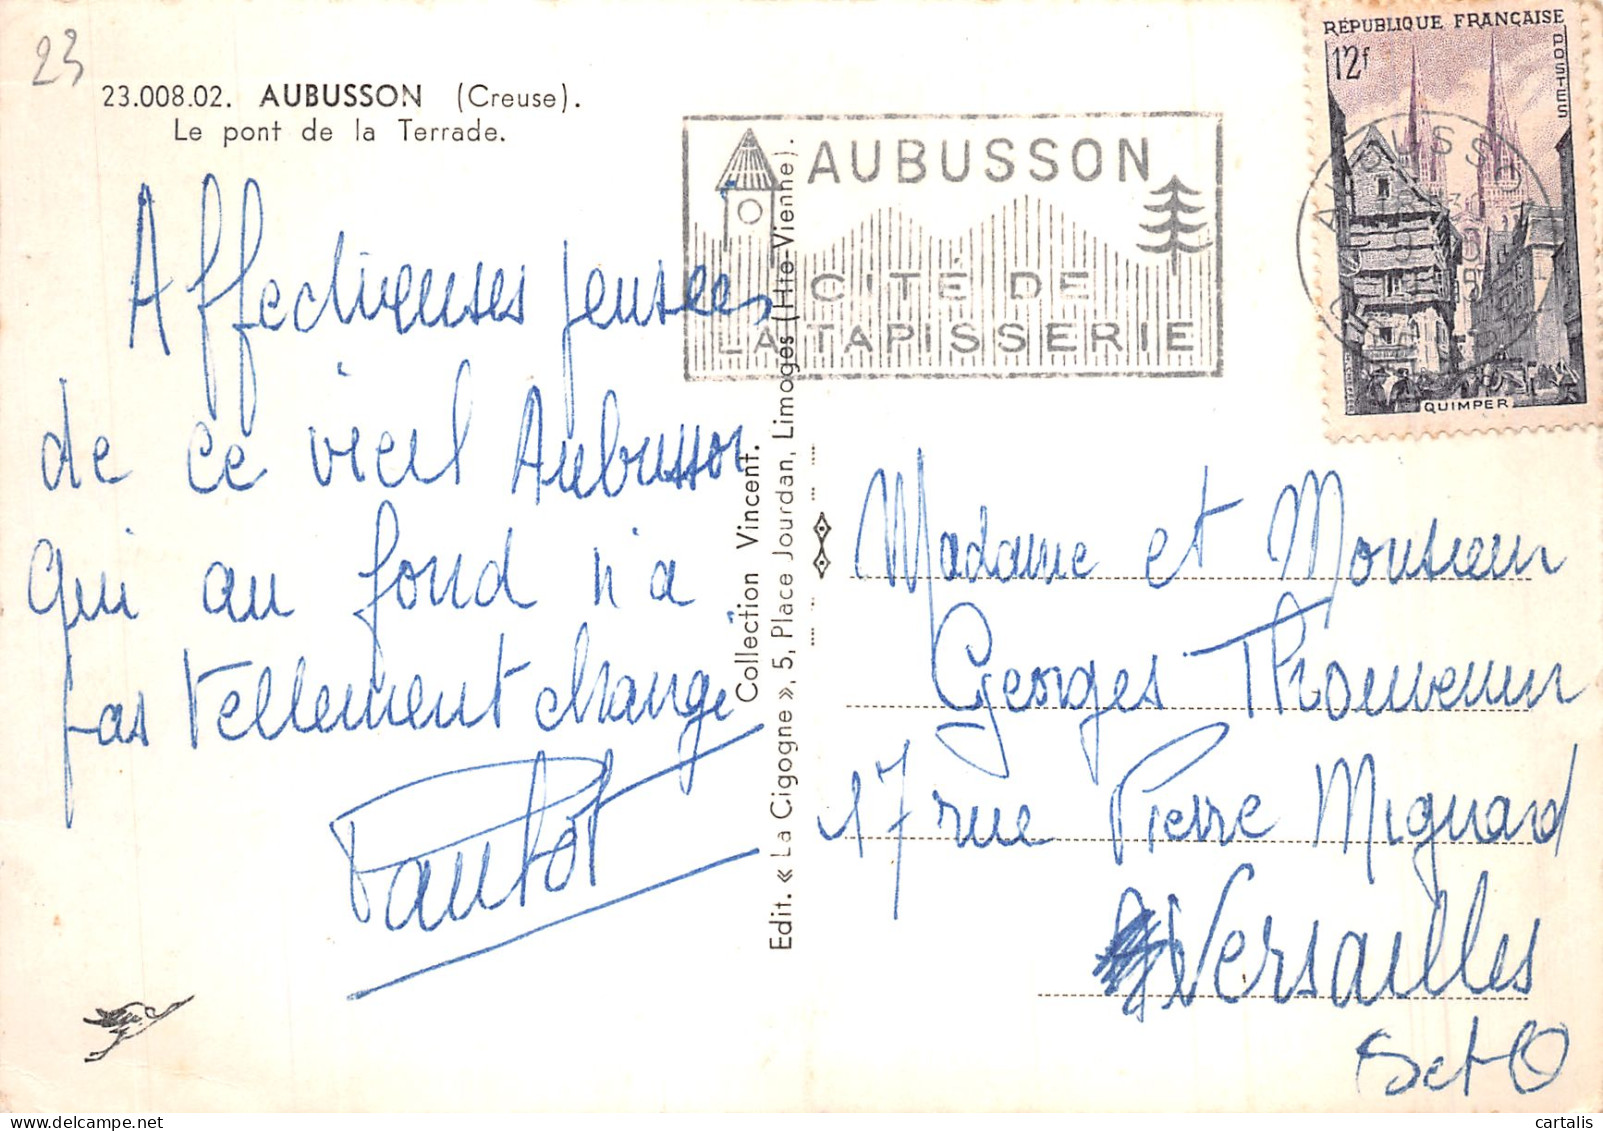 23
23.008.02. AUBUSSON (Creuse).
Le pont de la Terrade.
Affectueuses pensées
de ce vieil Aubusson
qui au fond n'a
pas tellement changé
Collection Vincent.
Edit. « La Cigogne », 5, Place Jourdan, Limoges (Hte-Vienne).
AUBUSSON
CITÉ DE
LA TAPISSERIE
RÉPUBLIQUE FRANÇAISE
12f
POSTES
QUIMPER
AUBUSSON
CREUSE
Madame et Monsieur
Georges Thouvenin
17 rue Pierre Mignard
Versailles
S et O
cartalis | delcampe.net